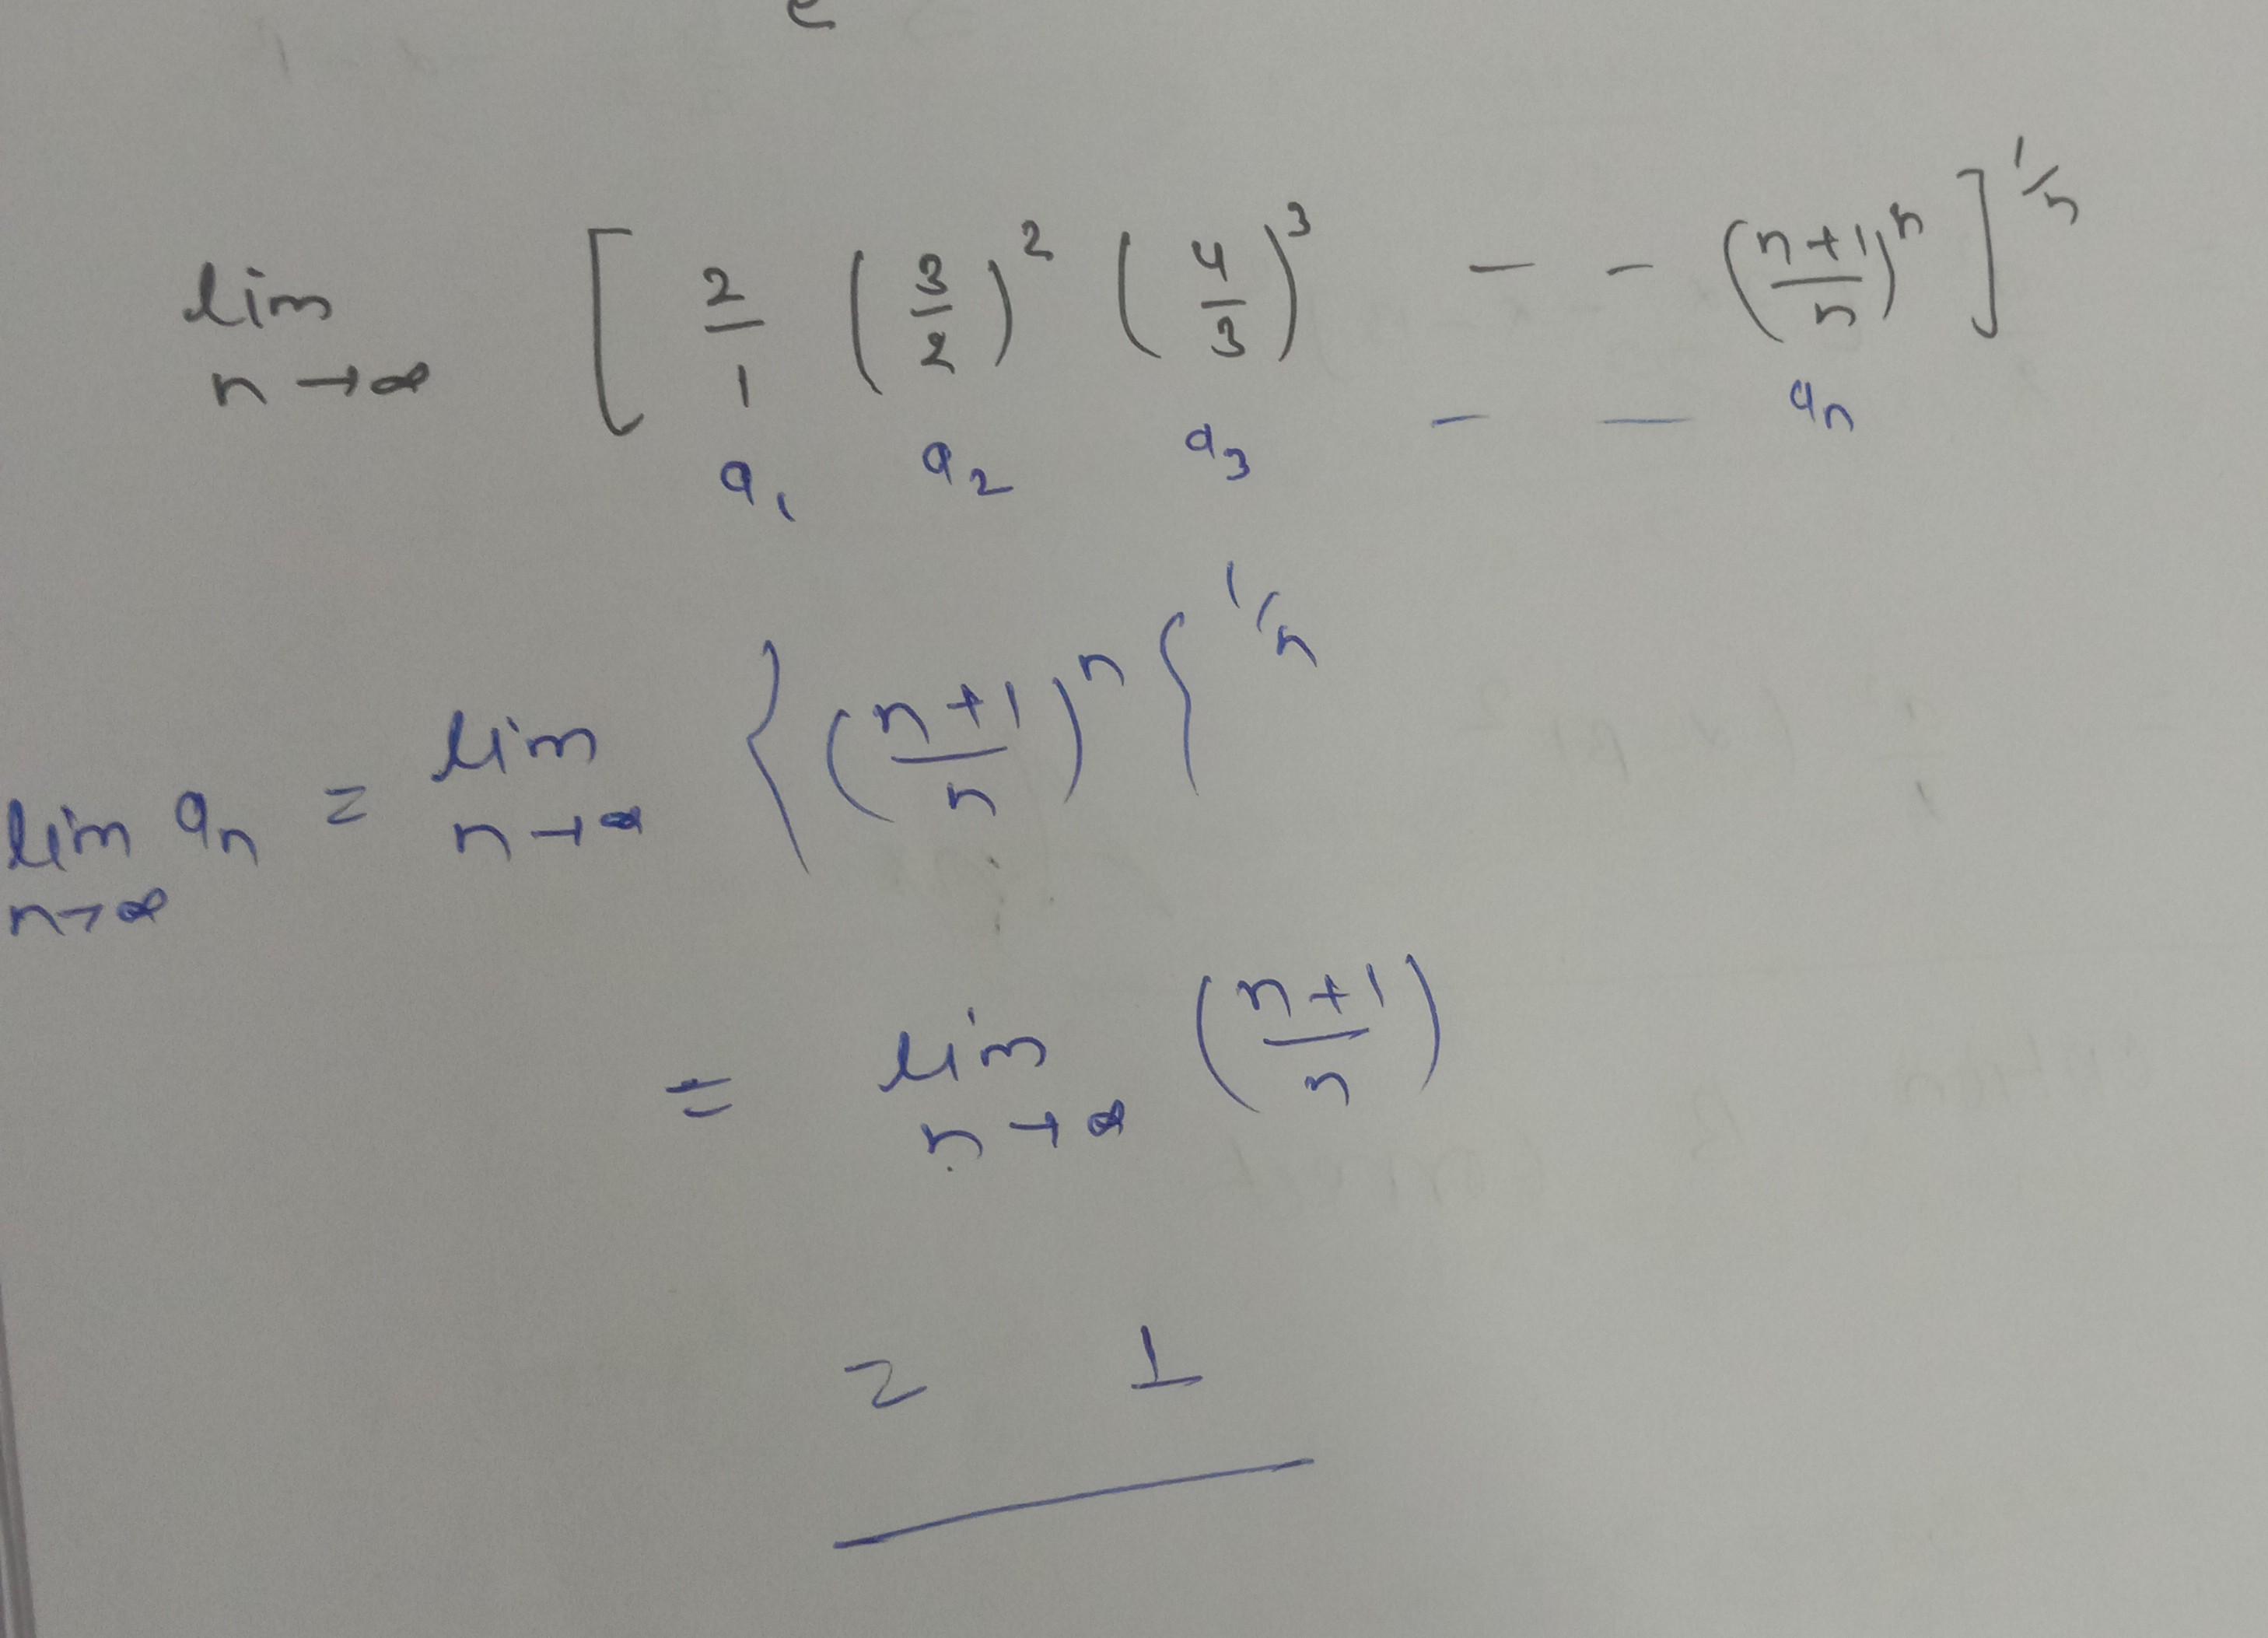 e
lim n→∞ [ 2/1 (3/2)² (4/3)³ - - (n+1/n)ⁿ ]^1/n
a₁ a₂ a₃ - - aₙ
lim n→∞ aₙ = lim n→∞ { (n+1/n)ⁿ }^1/n
= lim n→∞ (n+1/n)
= 1